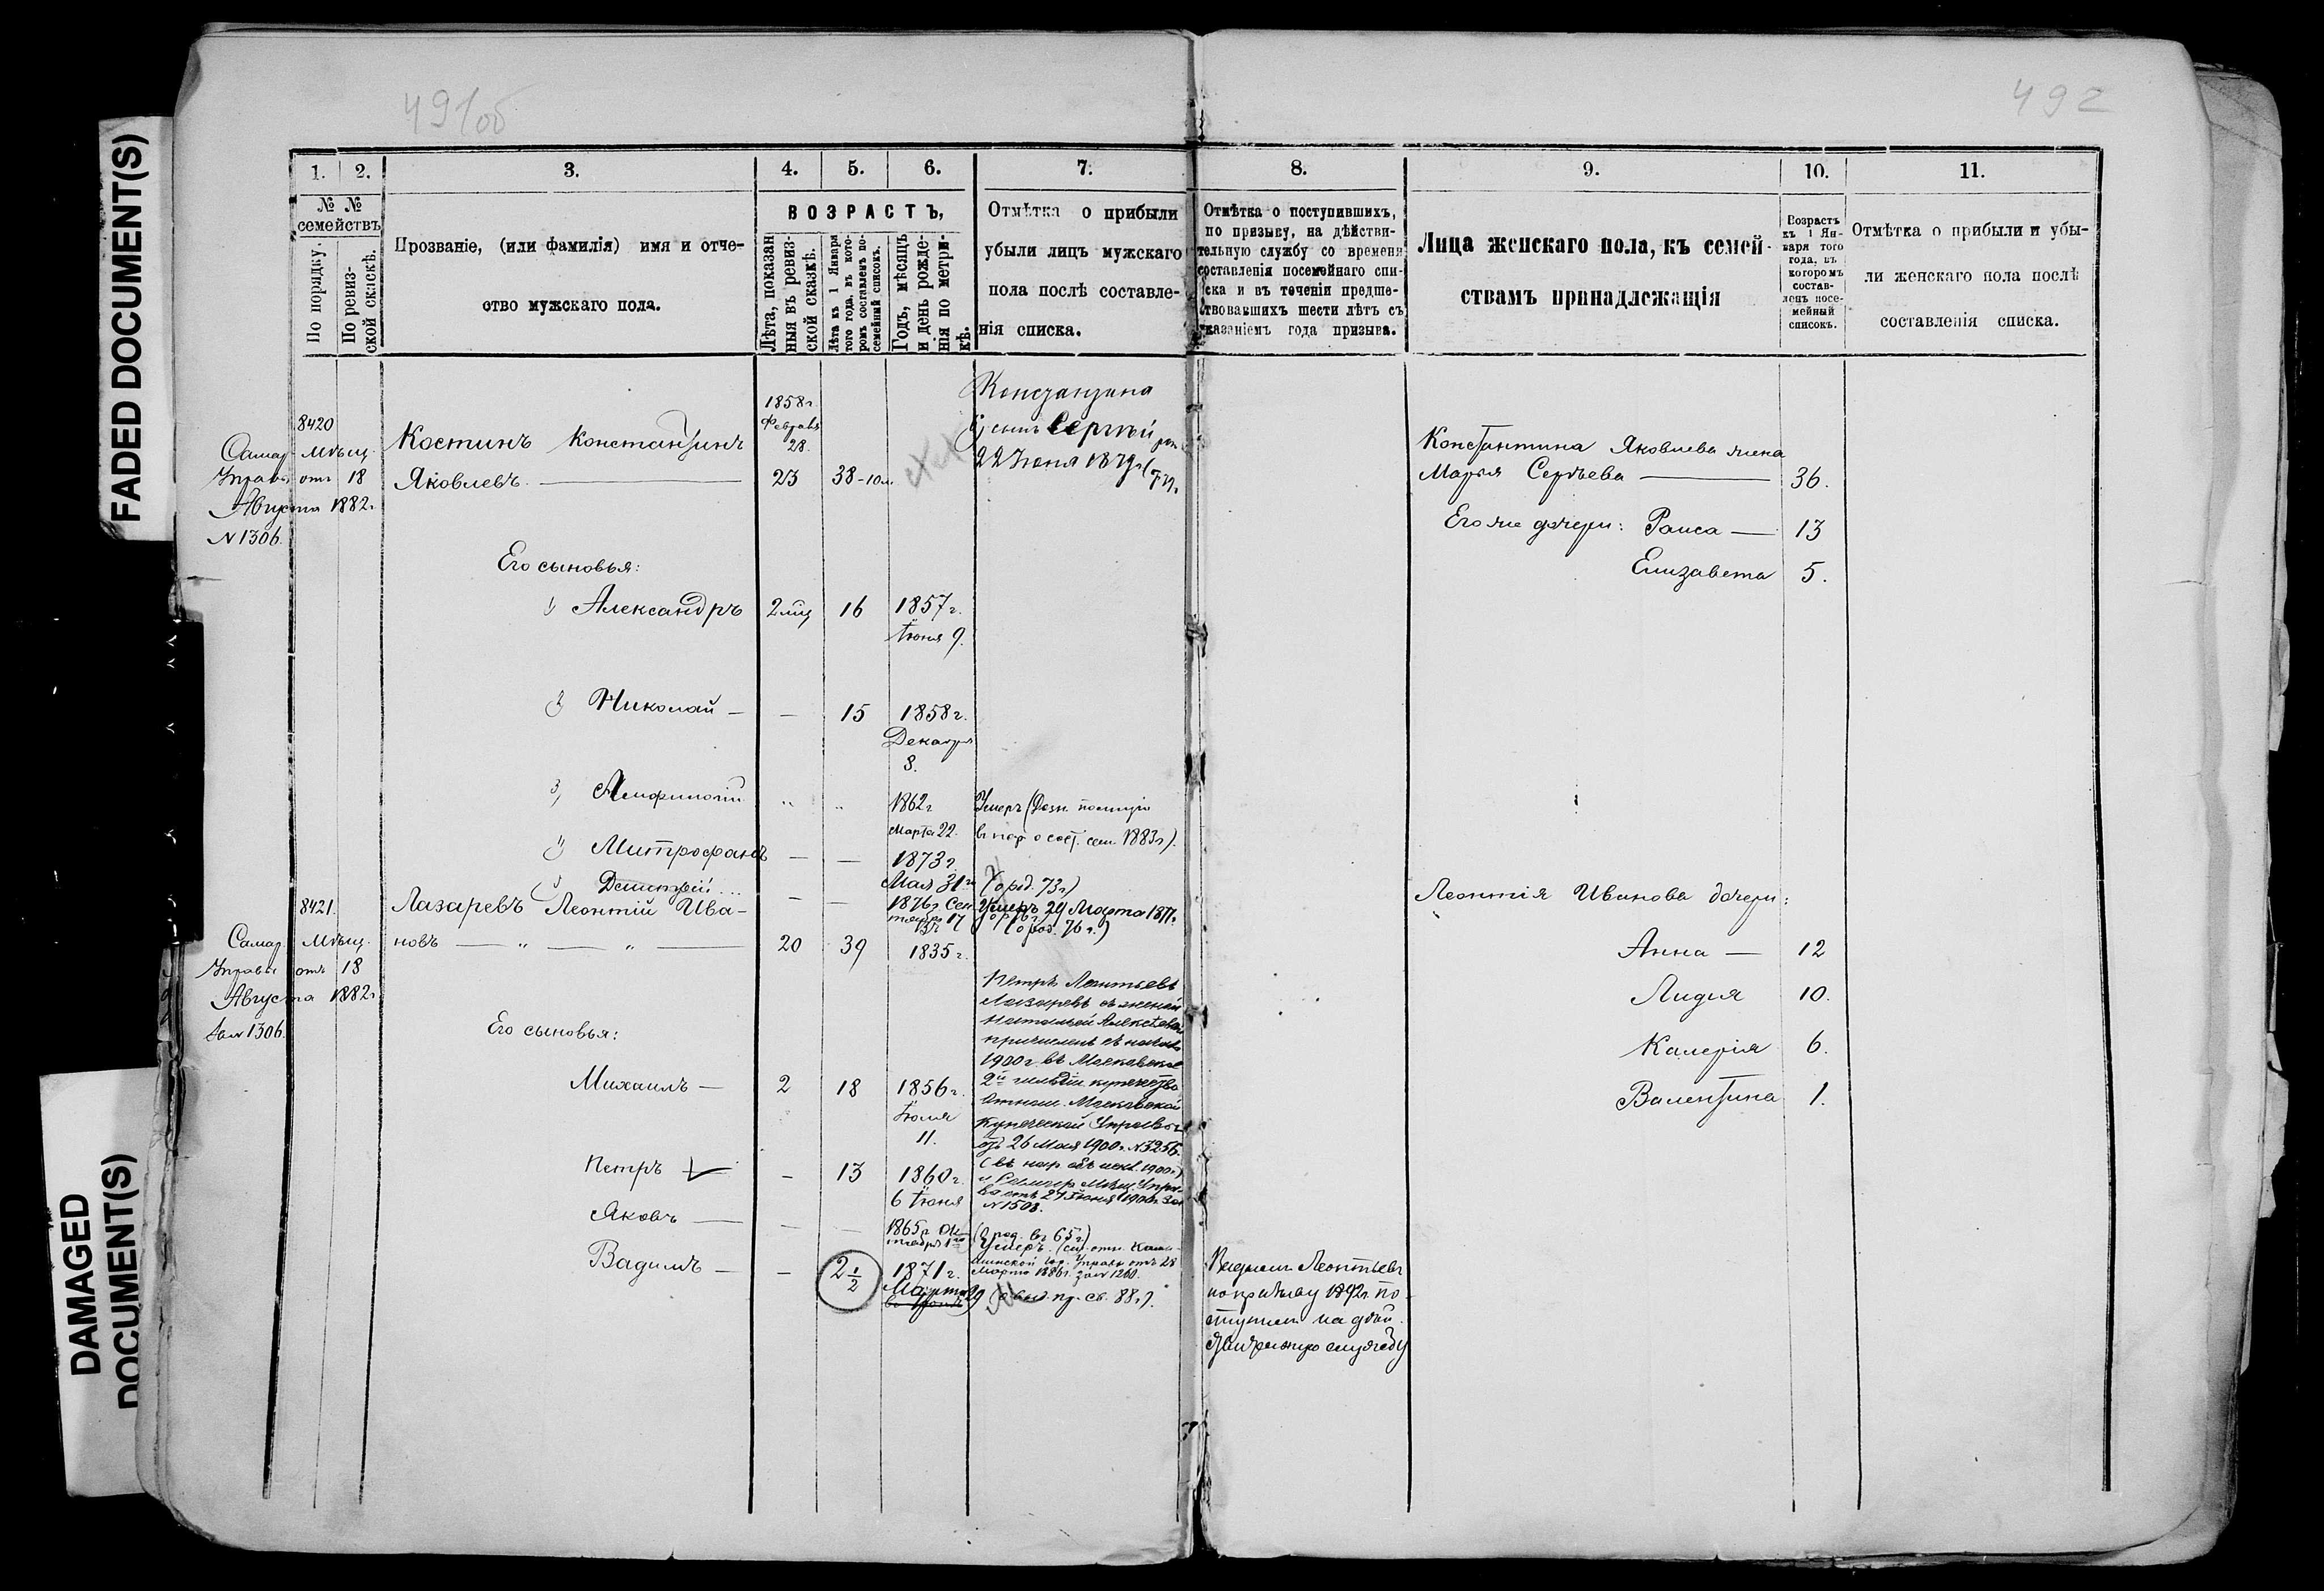 FADED DOCUMENT(S)
DAMAGED
DOCUMENT(S)
491об
492
1. 2. 3. 4. 5. 6. 7. 8. 9. 10. 11.
№ №
семействъ
По порядку.
По ревиз-
ской сказкѣ.
Прозваніе, (или фамилія) имя и отче-
ство мужскаго пола.
ВОЗРАСТЪ,
Лѣта, показан
ныя въ ревиз-
ской сказкѣ.
Лѣта къ 1 Января
того года, въ кото-
ромъ составленъ по-
семейный списокъ.
Годъ, мѣсяцъ
и день рожде-
нія по метри-
кѣ.
Отмѣтка о прибыли
убыли лицъ мужскаго
пола послѣ составле-
нія списка.
Отмѣтка о поступившихъ,
по призыву, на дѣйстви-
тельную службу со времени
составленія посемейнаго спи-
ска и въ теченіи предше-
ствовавшихъ шести лѣтъ съ
указаніемъ года призыва.
Лица женскаго пола, къ семей-
ствамъ принадлежащія
Возрастъ
къ 1 Ян-
варя того
года, въ
которомъ
состав-
ленъ посе-
мейный
списокъ.
Отмѣтка о прибыли и убы-
ли женскаго пола послѣ
составленія списка.
8420
Самар. Мѣщ.
Управы отъ 18
Августа 1882г.
N 1306.
Костинъ Константинъ
Яковлевъ
1858г.
Февраля
28.
23 38-10м.
Константина
сынъ Сергѣй
22 Іюня 1879г.
Константина Яковлева жена
Марья Сергѣева 36.
Его же дочери: Раиса 13
Елизавета 5.
Его сыновья:
1) Александръ 2 мѣц 16 1857г.
Іюня 9.
2) Николай 15 1858г.
Декабря
8.
3) 1862г
Марта 22.
Умеръ
1883г).
Митрофанъ 1873г.
Мая 31го (о род. 73г)
Дмитрій 1876г Сен
тября 17
Умеръ 29 Марта 1877г.
(о род. 76г.)
8421.
Самар. Мѣщ.
Управы отъ 18
Августа 1882г
за N 1306.
Лазаревъ Леонтій Ива-
новъ 20 39 1835г.
Леонтія Иванова дочери:
Анна 12
Лидія 10.
Калерія 6.
Валентина 1.
Петръ Леонтьевъ
Лазаревъ съ женой
Натальей Алексѣевой
причисленъ съ начала
1900г. въ Московское
2й гильдіи купечество
отнош. Московской
Купеческой Управы
отъ 26 Мая 1900г. N 3256.
Мѣщ. Упра-
вы отъ 27 Іюня 1900г. за
N 1508.
Его сыновья:
Михаилъ 2 18 1856г.
Іюля
11.
Петръ 13 1860г.
6 Іюня
Яковъ 1865г. Ок
тября 1го
(о род. въ 65г.)
Умеръ.
Управы отъ 28
Марта 1886г. за N 1260.
Вадимъ 2 1/2 1871г.
Марта 29 88г).
Вадимъ Леонтьевъ
по призыву 1892г. по-
ступилъ на дѣй-
ствительную службу